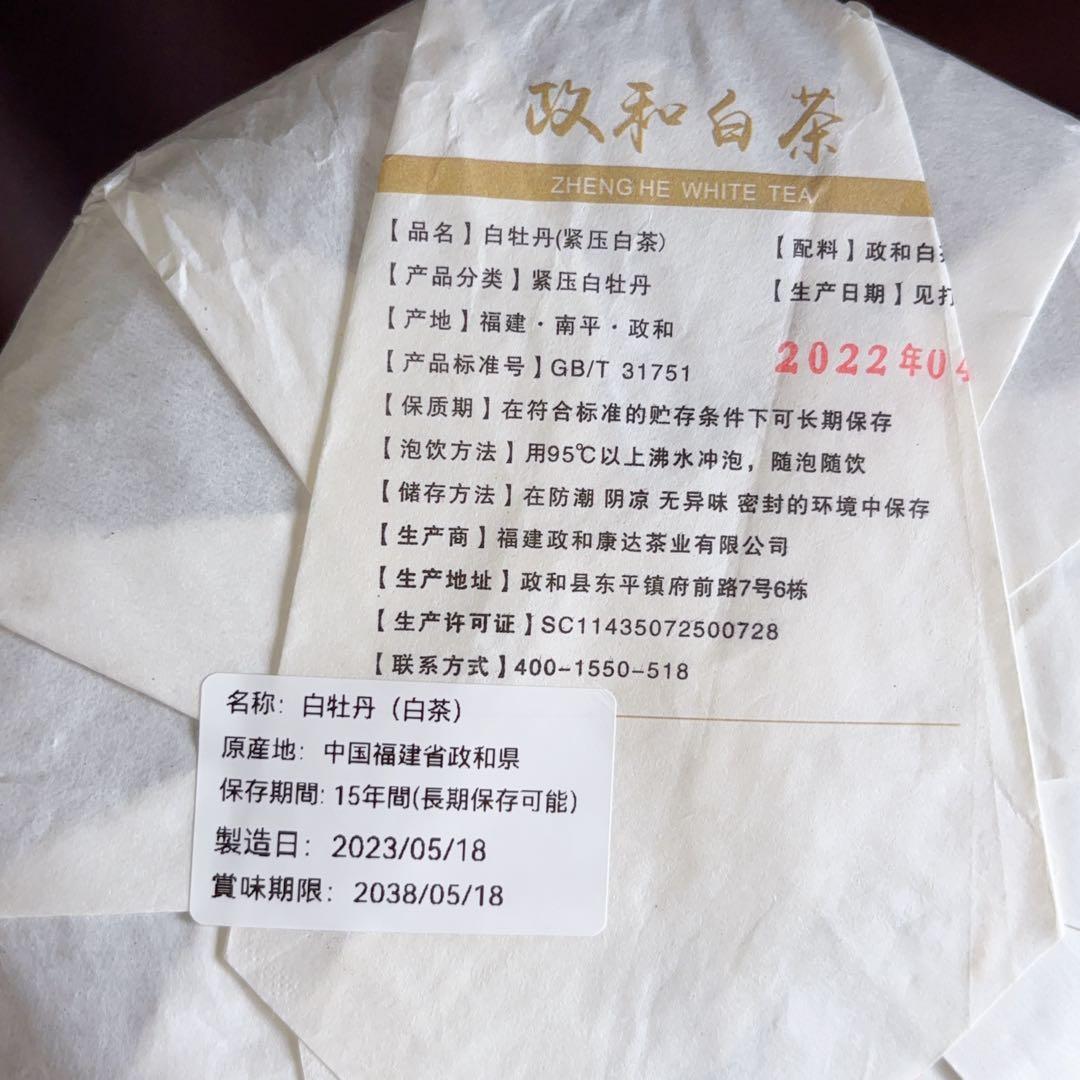 政和白茶
ZHENG HE WHITE TEA
【品名】白牡丹(紧压白茶)
【配料】政和白
【产品分类】紧压白牡丹
【生产日期】见打
【产地】福建·南平·政和
2022年04
【产品标准号】GB/T 31751
【保质期】在符合标准的贮存条件下可长期保存
【泡饮方法】用95℃以上沸水冲泡，随泡随饮
【储存方法】在防潮 阴凉 无异味 密封的环境中保存
【生产商】福建政和康达茶业有限公司
【生产地址】政和县东平镇府前路7号6栋
【生产许可证】SC11435072500728
【联系方式】400-1550-518
名称: 白牡丹（白茶）
原産地: 中国福建省政和県
保存期間: 15年間(長期保存可能)
製造日: 2023/05/18
賞味期限: 2038/05/18